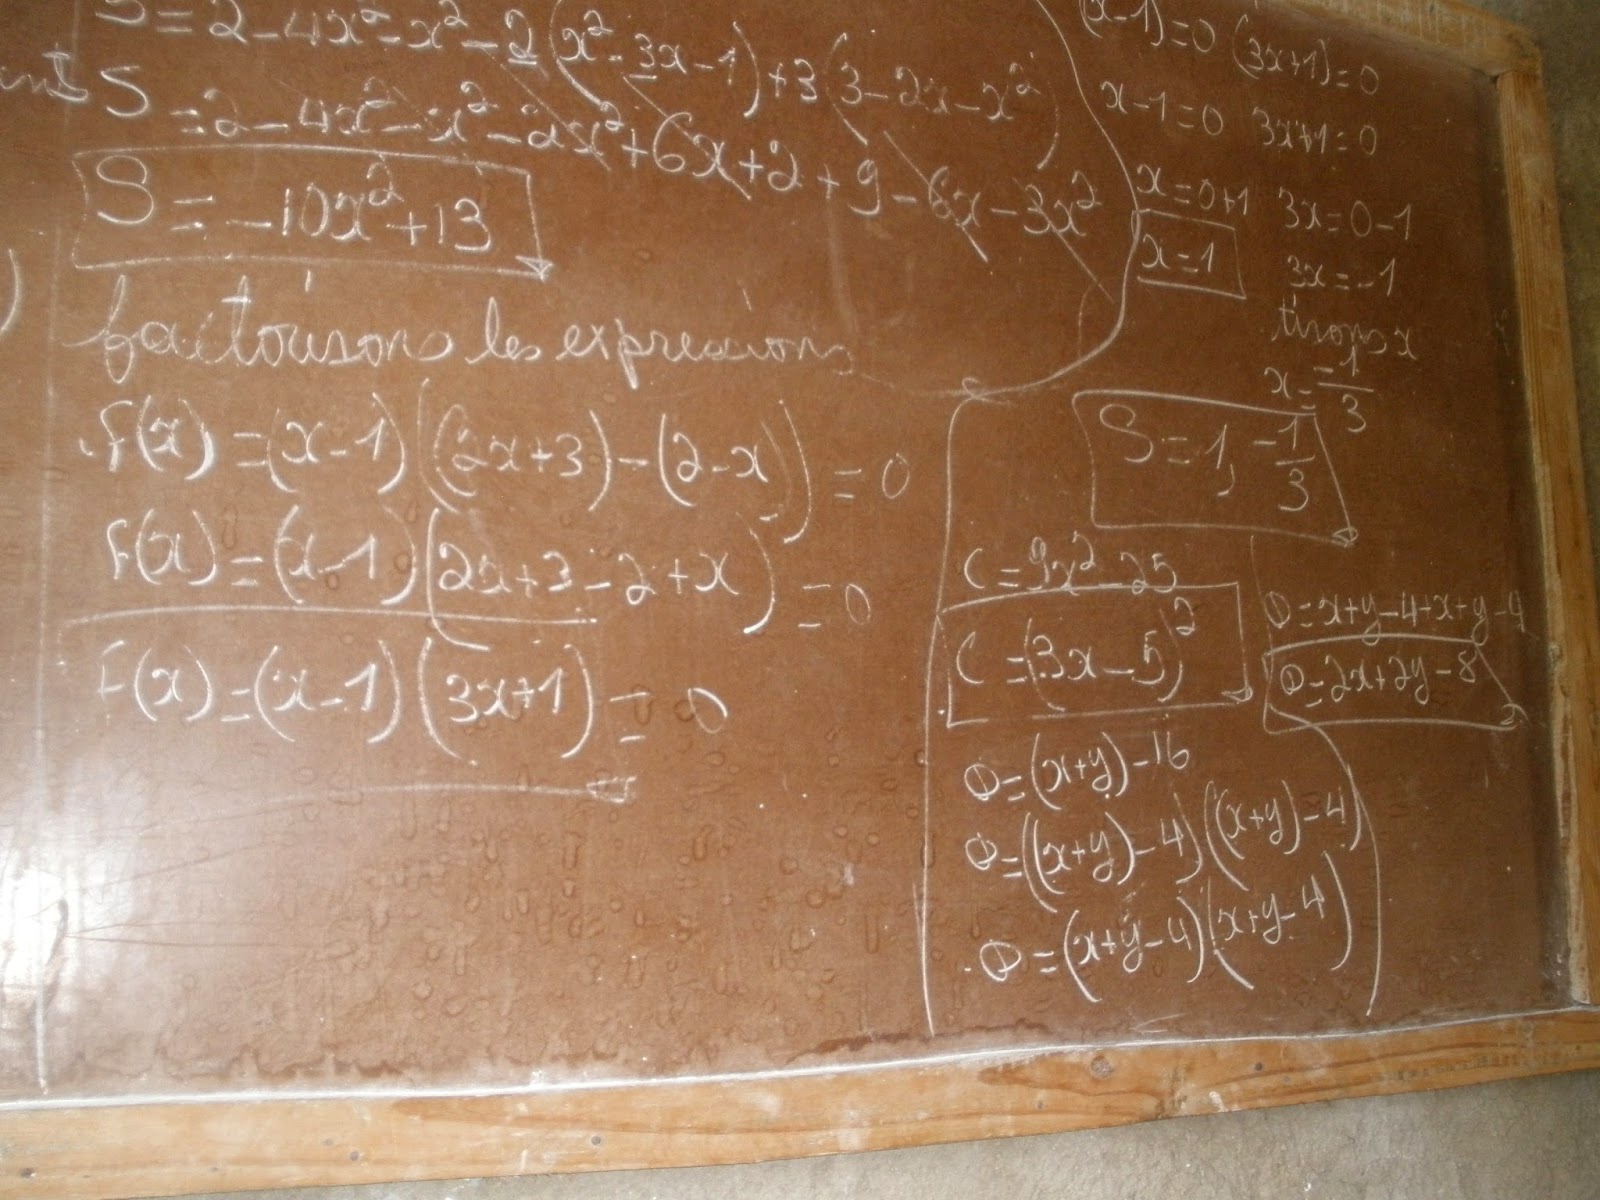 S = 2 - 4x² - x² - 2(x² - 3x - 1) + 3(3 - 2x - x²)
S = 2 - 4x² - x² - 2x² + 6x + 2 + 9 - 6x - 3x²
S = -10x² + 13
factorisons les expressions
f(x) = (x-1)((2x+3) - (2-x)) = 0
f(x) = (x-1)(2x+3-2+x) = 0
f(x) = (x-1)(3x+1) = 0
(x-1)=0 (3x+1)=0
x-1=0 3x+1=0
x=0+1 3x=0-1
x=1 3x=-1
tirons x
x = -1/3
S = 1, -1/3
C = 9x² - 25
C = (3x-5)²
D = (x+y) - 16
D = ((x+y)-4)((x+y)-4)
D = (x+y-4)(x+y-4)
D = x+y-4+x+y-4
D = 2x+2y-8